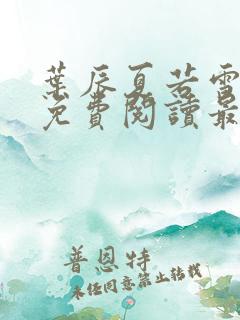 葉辰夏若雪
免費閱讀最
普恩特
未经同意禁止转载